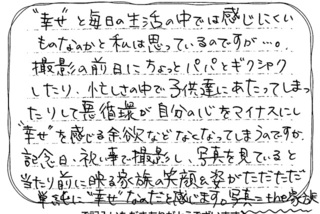 "幸せ"と毎日の生活の中では感じにくい
ものなのかと私は思っているのですが…。
撮影の前日にちょっとパパとギクシャク
したり、忙しさの中で子供達にあたってしまっ
たりして悪循環が自分の心をマイナスにし
"幸せ"を感じる余欲などなくなってしまうのですが、
記念日、祝い事で撮影し、写真を見ていると
当たり前に映る家族の笑顔&姿がただただただ
単純に"幸せ"だなと感じます。写真=the家族